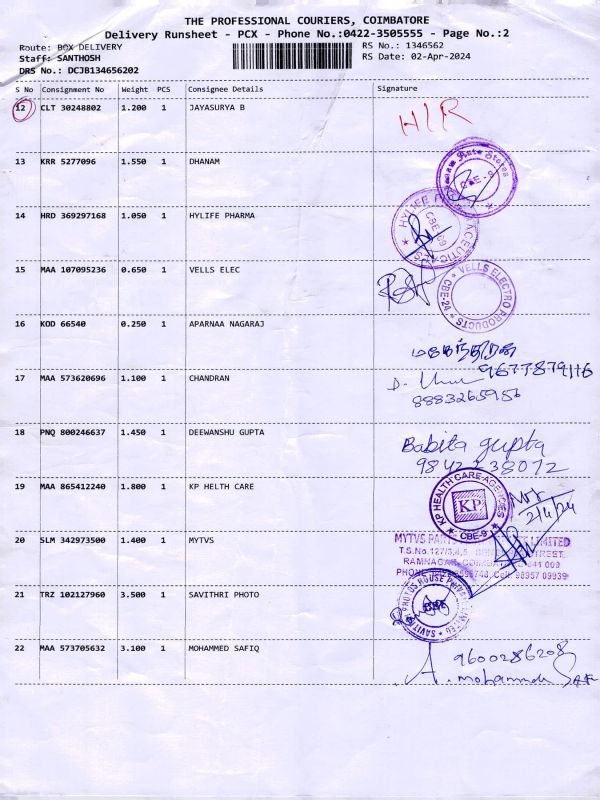 THE PROFESSIONAL COURIERS, COIMBATORE
Delivery Runsheet - PCX - Phone No.:0422-3505555 - Page No.:2
Route: BOX DELIVERY RS No.: 1346562
Staff: SANTHOSH RS Date: 02-Apr-2024
DRS No.: DCJB134656202
S No Consignment No Weight PCS Consignee Details Signature
12 CLT 30248802 1.200 1 JAYASURYA B
13 KRR 5277096 1.550 1 DHANAM
CBE - 9
14 HRD 369297168 1.050 1 HYLIFE PHARMA
CBE-09
15 MAA 107095236 0.650 1 VELLS ELEC
VELLS ELECTRO PRODUCTS
16 KOD 66540 0.250 1 APARNAA NAGARAJ
9677879116
17 MAA 573620696 1.100 1 CHANDRAN
8883265956
18 PNQ 800246637 1.450 1 DEEWANSHU GUPTA Babita gupta
9842238072
19 MAA 865412240 1.800 1 KP HELTH CARE
KP HEALTH CARE AGENCIES
KP
CBE-9
2/4/24
20 SLM 342973500 1.400 1 MYTVS
MYTVS LIMITED
STREET
RAMNAGAR, 641 009
Cell: 98957 09939
21 TRZ 102127960 3.500 1 SAVITHRI PHOTO
22 MAA 573705632 3.100 1 MOHAMMED SAFIQ 9600286208